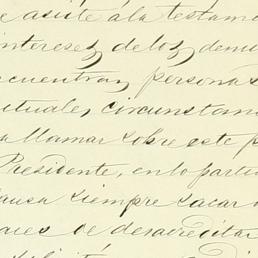 e asiste á la testamo
intereses de los demu
cuentran personas
ctuales circunstam
a llamar sobre este p
Presidente, en lo parti
causa siempre sacar a
ares de desacreditar